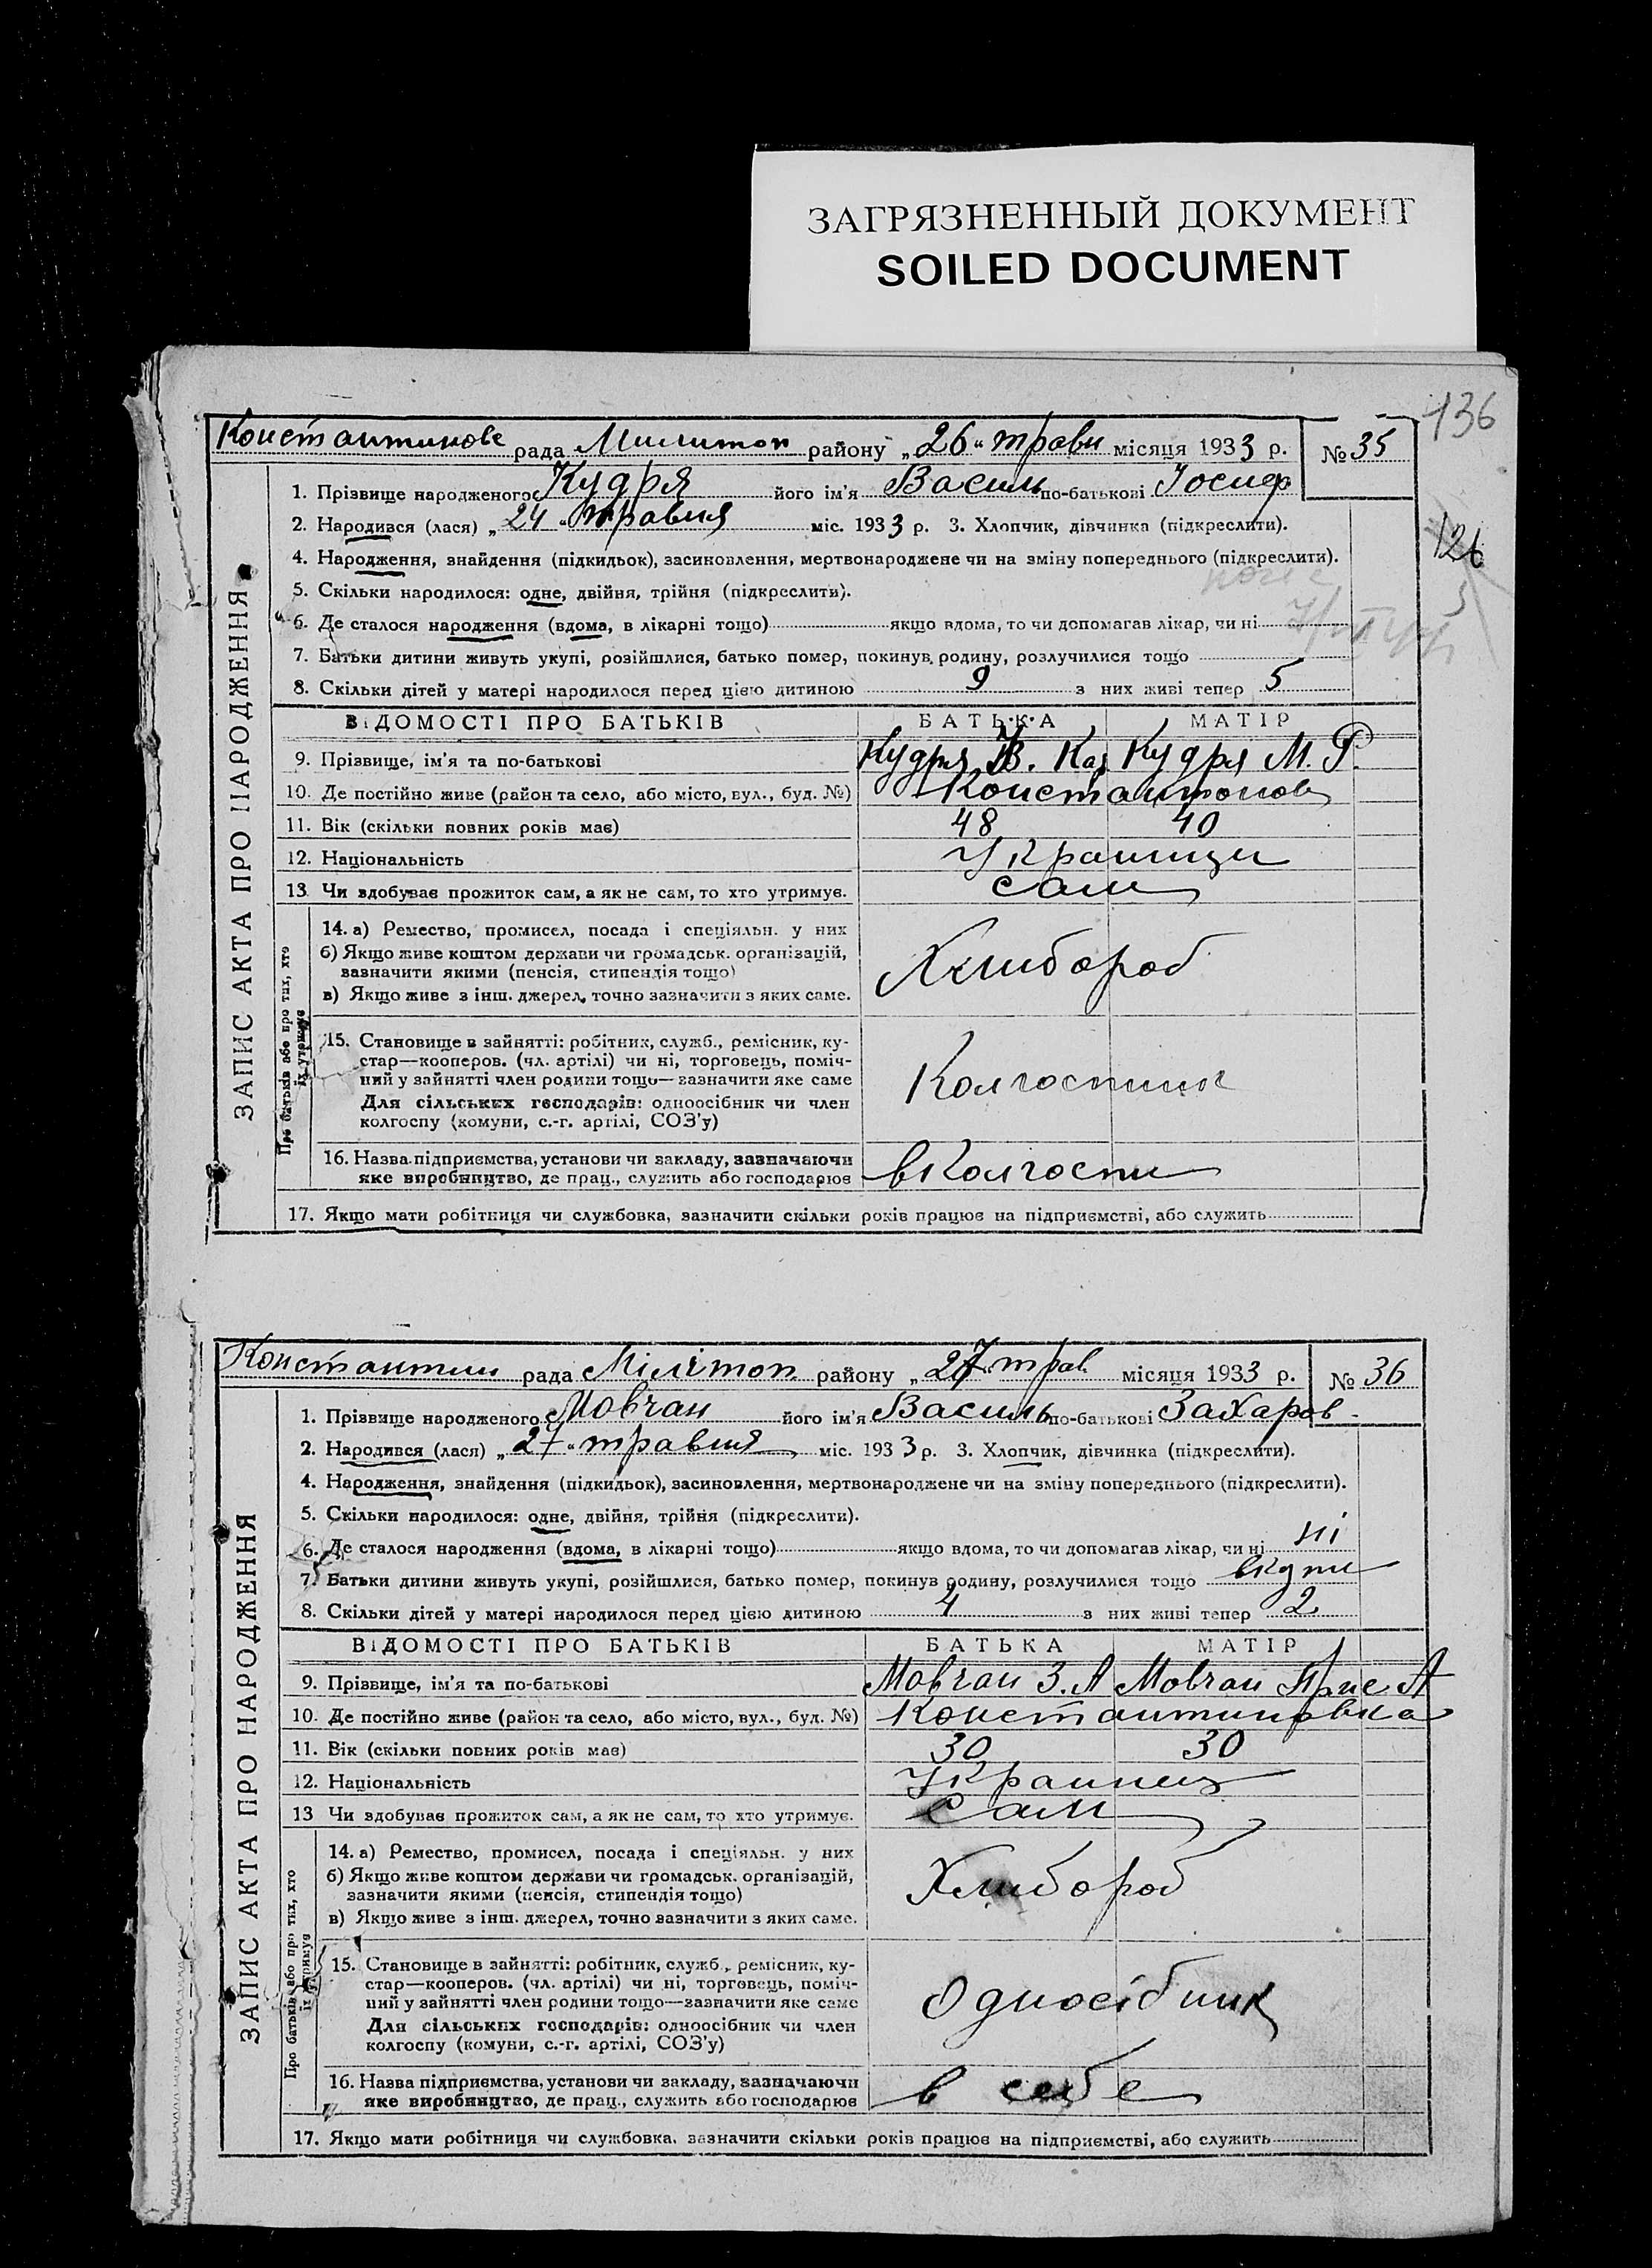 ЗАГРЯЗНЕННЫЙ ДОКУМЕНТ
SOILED DOCUMENT
136
Константинове рада Милитоп району „26“ травн місяця 1933 р. № 35
1. Прізвище народженого Кудря його ім'я Василь по-батькові Йосиф
2. Народився (лася) „24“ травня міс. 1933 р. 3. Хлопчик, дівчинка (підкреслити).
126
4. Народження, знайдення (підкидьок), засиновлення, мертвонароджене чи на зміну попереднього (підкреслити).
5. Скільки народилося: одне, двійня, трійня (підкреслити).
6. Де сталося народження (вдома, в лікарні тощо) якщо вдома, то чи допомагав лікар, чи ні
7. Батьки дитини живуть укупі, розійшлися, батько помер, покинув родину, розлучилися тощо
8. Скільки дітей у матері народилося перед цією дитиною 9 з них живі тепер 5
ВІДОМОСТІ ПРО БАТЬКІВ БАТЬКА МАТІР
9. Прізвище, ім'я та по-батькові Кудря Кудря М. Р.
10. Де постійно живе (район та село, або місто, вул., буд. №) Констан
11. Вік (скільки повних років має) 48 40
12. Національність Украинци
13. Чи здобуває прожиток сам, а як не сам, то хто утримує. Сам
14. а) Ремество, промисел, посада і спеціяльн. у них
б) Якщо живе коштом держави чи громадськ. організацій,
зазначити якими (пенсія, стипендія тощо)
в) Якщо живе з інш. джерел, точно зазначити з яких саме.
Хлибороб
15. Становище в зайнятті: робітник, служб., ремісник, ку-
стар—кооперов. (чл. артілі) чи ні, торговець, поміч-
ний у зайнятті член родини тощо—зазначити яке саме
Для сільських господарів: одноосібник чи член
колгоспу (комуни, с.-г. артілі, СОЗ'у)
Колгоспник
16. Назва підприємства, установи чи закладу, зазначаючи
яке виробництво, де прац., служить або господарює
в Колгоспи
17. Якщо мати робітниця чи службовка, зазначити скільки років працює на підприємстві, або служить
ЗАПИС АКТА ПРО НАРОДЖЕННЯ
Про батьків або про тих, хто
їх утримує
Константин рада Мілітоп району „27“ трав місяця 1933 р. № 36
1. Прізвище народженого Мовчан його ім'я Василь по-батькові Захаров
2. Народився (лася) „27“ травня міс. 1933 р. 3. Хлопчик, дівчинка (підкреслити).
4. Народження, знайдення (підкидьок), засиновлення, мертвонароджене чи на зміну попереднього (підкреслити).
5. Скільки народилося: одне, двійня, трійня (підкреслити).
6. Де сталося народження (вдома, в лікарні тощо) якщо вдома, то чи допомагав лікар, чи ні ні
7. Батьки дитини живуть укупі, розійшлися, батько помер, покинув родину, розлучилися тощо вкупи
8. Скільки дітей у матері народилося перед цією дитиною 4 з них живі тепер 2
ВІДОМОСТІ ПРО БАТЬКІВ БАТЬКА МАТІР
9. Прізвище, ім'я та по-батькові Мовчан З. А Мовчан А
10. Де постійно живе (район та село, або місто, вул., буд. №) Константиновка
11. Вік (скільки повних років має) 30 30
12. Національність Украинец
13 Чи здобуває прожиток сам, а як не сам, то хто утримує. Сам
14. а) Ремество, промисел, посада і спеціяльн. у них
б) Якщо живе коштом держави чи громадськ. організацій,
зазначити якими (пенсія, стипендія тощо)
в) Якщо живе з інш. джерел, точно зазначити з яких саме.
Хлибороб
15. Становище в зайнятті: робітник, служб., ремісник, ку-
стар—кооперов. (чл. артілі) чи ні, торговець, поміч-
ний у зайнятті член родини тощо—зазначити яке саме
Для сільських господарів: одноосібник чи член
колгоспу (комуни, с.-г. артілі, СОЗ'у)
Одноосібник
16. Назва підприємства, установи чи закладу, зазначаючи
яке виробництво, де прац., служить або господарює
в себе
17. Якщо мати робітниця чи службовка, зазначити скільки років працює на підприємстві, або служить
ЗАПИС АКТА ПРО НАРОДЖЕННЯ
Про батьків або про тих, хто
їх утримує